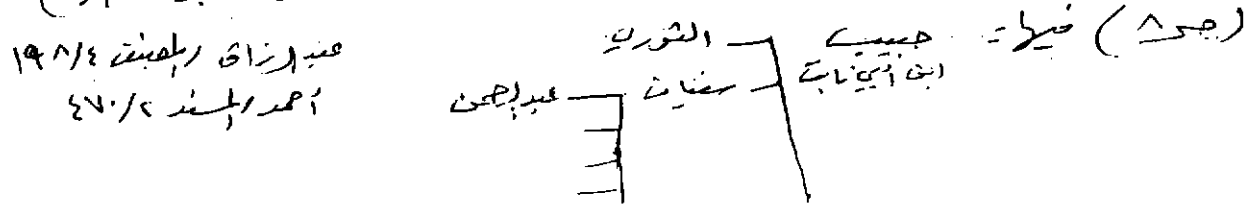 (ص ٨) فيها: حبيب ابن أبي ثابت — الثوري
سفيان — عبدالرحمن
عبدالرزاق المصنف ١٩٨/٤
أحمد المسند ٤٧٠/٢